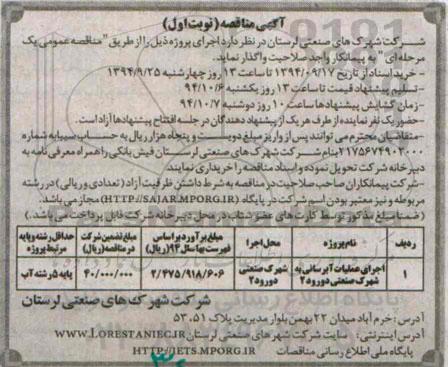 آگهی مناقصه (نوبت اول)
شرکت شهرک های صنعتی لرستان در نظر دارد اجرای پروژه ذیل را از طریق "مناقصه عمومی یک
مرحله ای" به پیمانکار واجد صلاحیت واگذار نماید.
-خرید اسناد از تاریخ ۱۳۹۴/۰۹/۱۷ تا ساعت ۱۳ روز چهارشنبه ۱۳۹۴/۹/۲۵
-تسلیم پیشنهاد قیمت تا ساعت ۱۳ روز یکشنبه ۹۴/۱۰/۶
-زمان گشایش پیشنهادها ساعت ۱۰ روز دوشنبه ۹۴/۱۰/۷
-حضور یک نفر نماینده از طرف هر یک از پیشنهاد دهندگان در جلسه افتتاح پیشنهادها آزاد است.
-متقاضیان محترم می توانند پس از واریز مبلغ دویست و پنجاه هزار ریال به حساب سیبا به شماره
۲۱۷۵۶۷۴۹۰۳۰۰۰ بنام شرکت شهرک های صنعتی لرستان فیش بانکی را همراه معرفی نامه به
دبیرخانه شرکت تحویل نموده و اسناد مناقصه را خریداری نمایند.
-شرکت پیمانکاران صاحب صلاحیت در مناقصه به شرط داشتن ظرفیت آزاد (تعدادی و ریالی) در رشته
مربوطه و نیز معتبر بودن اسم شرکت در پایگاه (HTTP://SAJAR.MPORG.IR) مجاز می باشد.
(ضمنا مبلغ مذکور توسط کارت های عضو شتاب در محل دبیرخانه شرکت قابل پرداخت می باشد.)
ردیف نام پروژه محل اجرا مبلغ برآورد براساس فهرست بها سال ۹۴ (ریال) مبلغ تضمین شرکت در مناقصه (ریال) حداقل رشته و پایه مرتبط پروژه
۱ اجرای عملیات آبرسانی به شهرک صنعتی دورود ۲ شهرک صنعتی دورود ۲ ۲/۴۷۵/۹۱۸/۶۰۶ ۴۰/۰۰۰/۰۰۰ پایه ۵ رشته آب
شرکت شهرک های صنعتی لرستان
آدرس: خرم آباد میدان ۲۲ بهمن بلوار مدیریت پلاک ۵۳،۵۱
آدرس اینترنتی: سایت شرکت شهرک های صنعتی لرستان WWW.LORESTANIEC.IR
پایگاه ملی اطلاع رسانی مناقصات HTTP://IETS.MPORG.IR